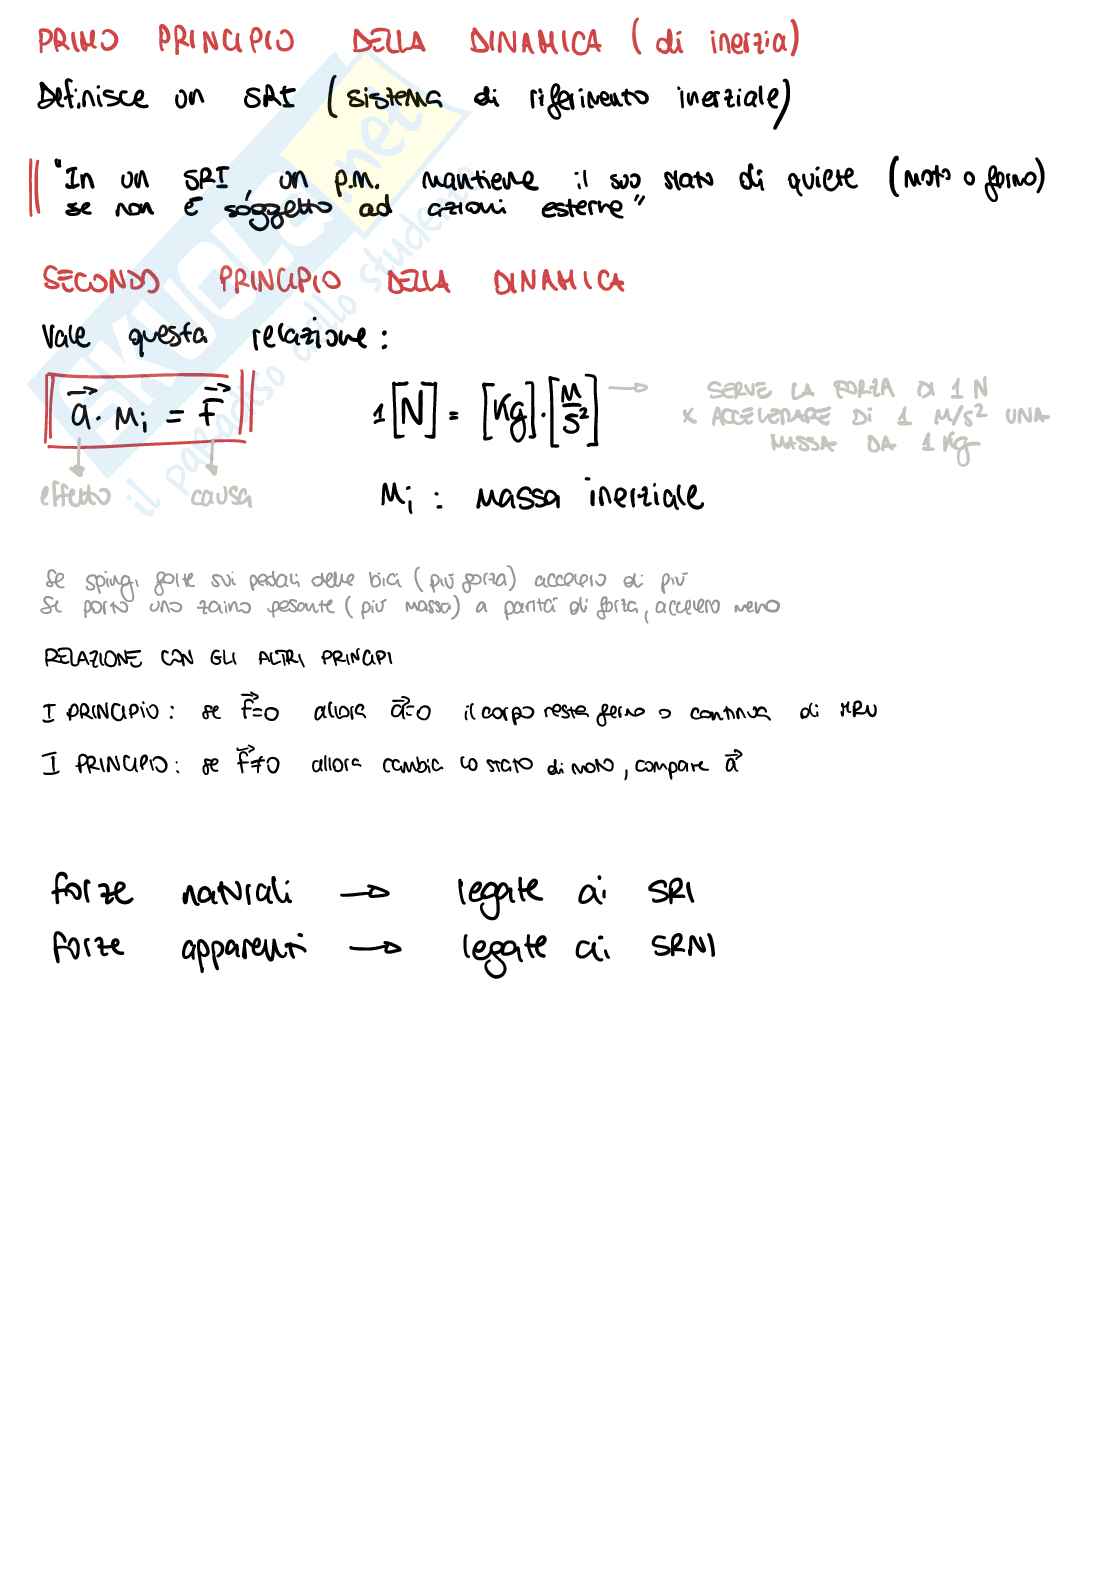 PRIMO PRINCIPIO DELLA DINAMICA (di inerzia)
Definisce un SRI (sistema di riferimento inerziale)
"In un SRI, un p.m. mantiene il suo stato di quiete (moto o fermo)
se non è soggetto ad azioni esterne"
SECONDO PRINCIPIO DELLA DINAMICA
Vale questa relazione:
a⃗ · mᵢ = F⃗
1 [N] = [Kg] · [m/s²] → SERVE LA FORZA DI 1 N
X ACCELERARE DI 1 M/S² UNA
MASSA DA 1 Kg
effetto causa
mᵢ : massa inerziale
Se spingi forte sui pedali delle bici (più forza) accelero di più
Se porto uno zaino pesante (più massa) a parità di forza, accelero meno
RELAZIONE CON GLI ALTRI PRINCIPI
I PRINCIPIO: se F⃗=0 allora a⃗=0 il corpo resta fermo o continua di MRU
I PRINCIPIO: se F⃗≠0 allora cambia lo stato di moto, compare a⃗
forze naturali → legate ai SRI
forze apparenti → legate ai SRNI
SKUOLA.net
il paradiso dello studente